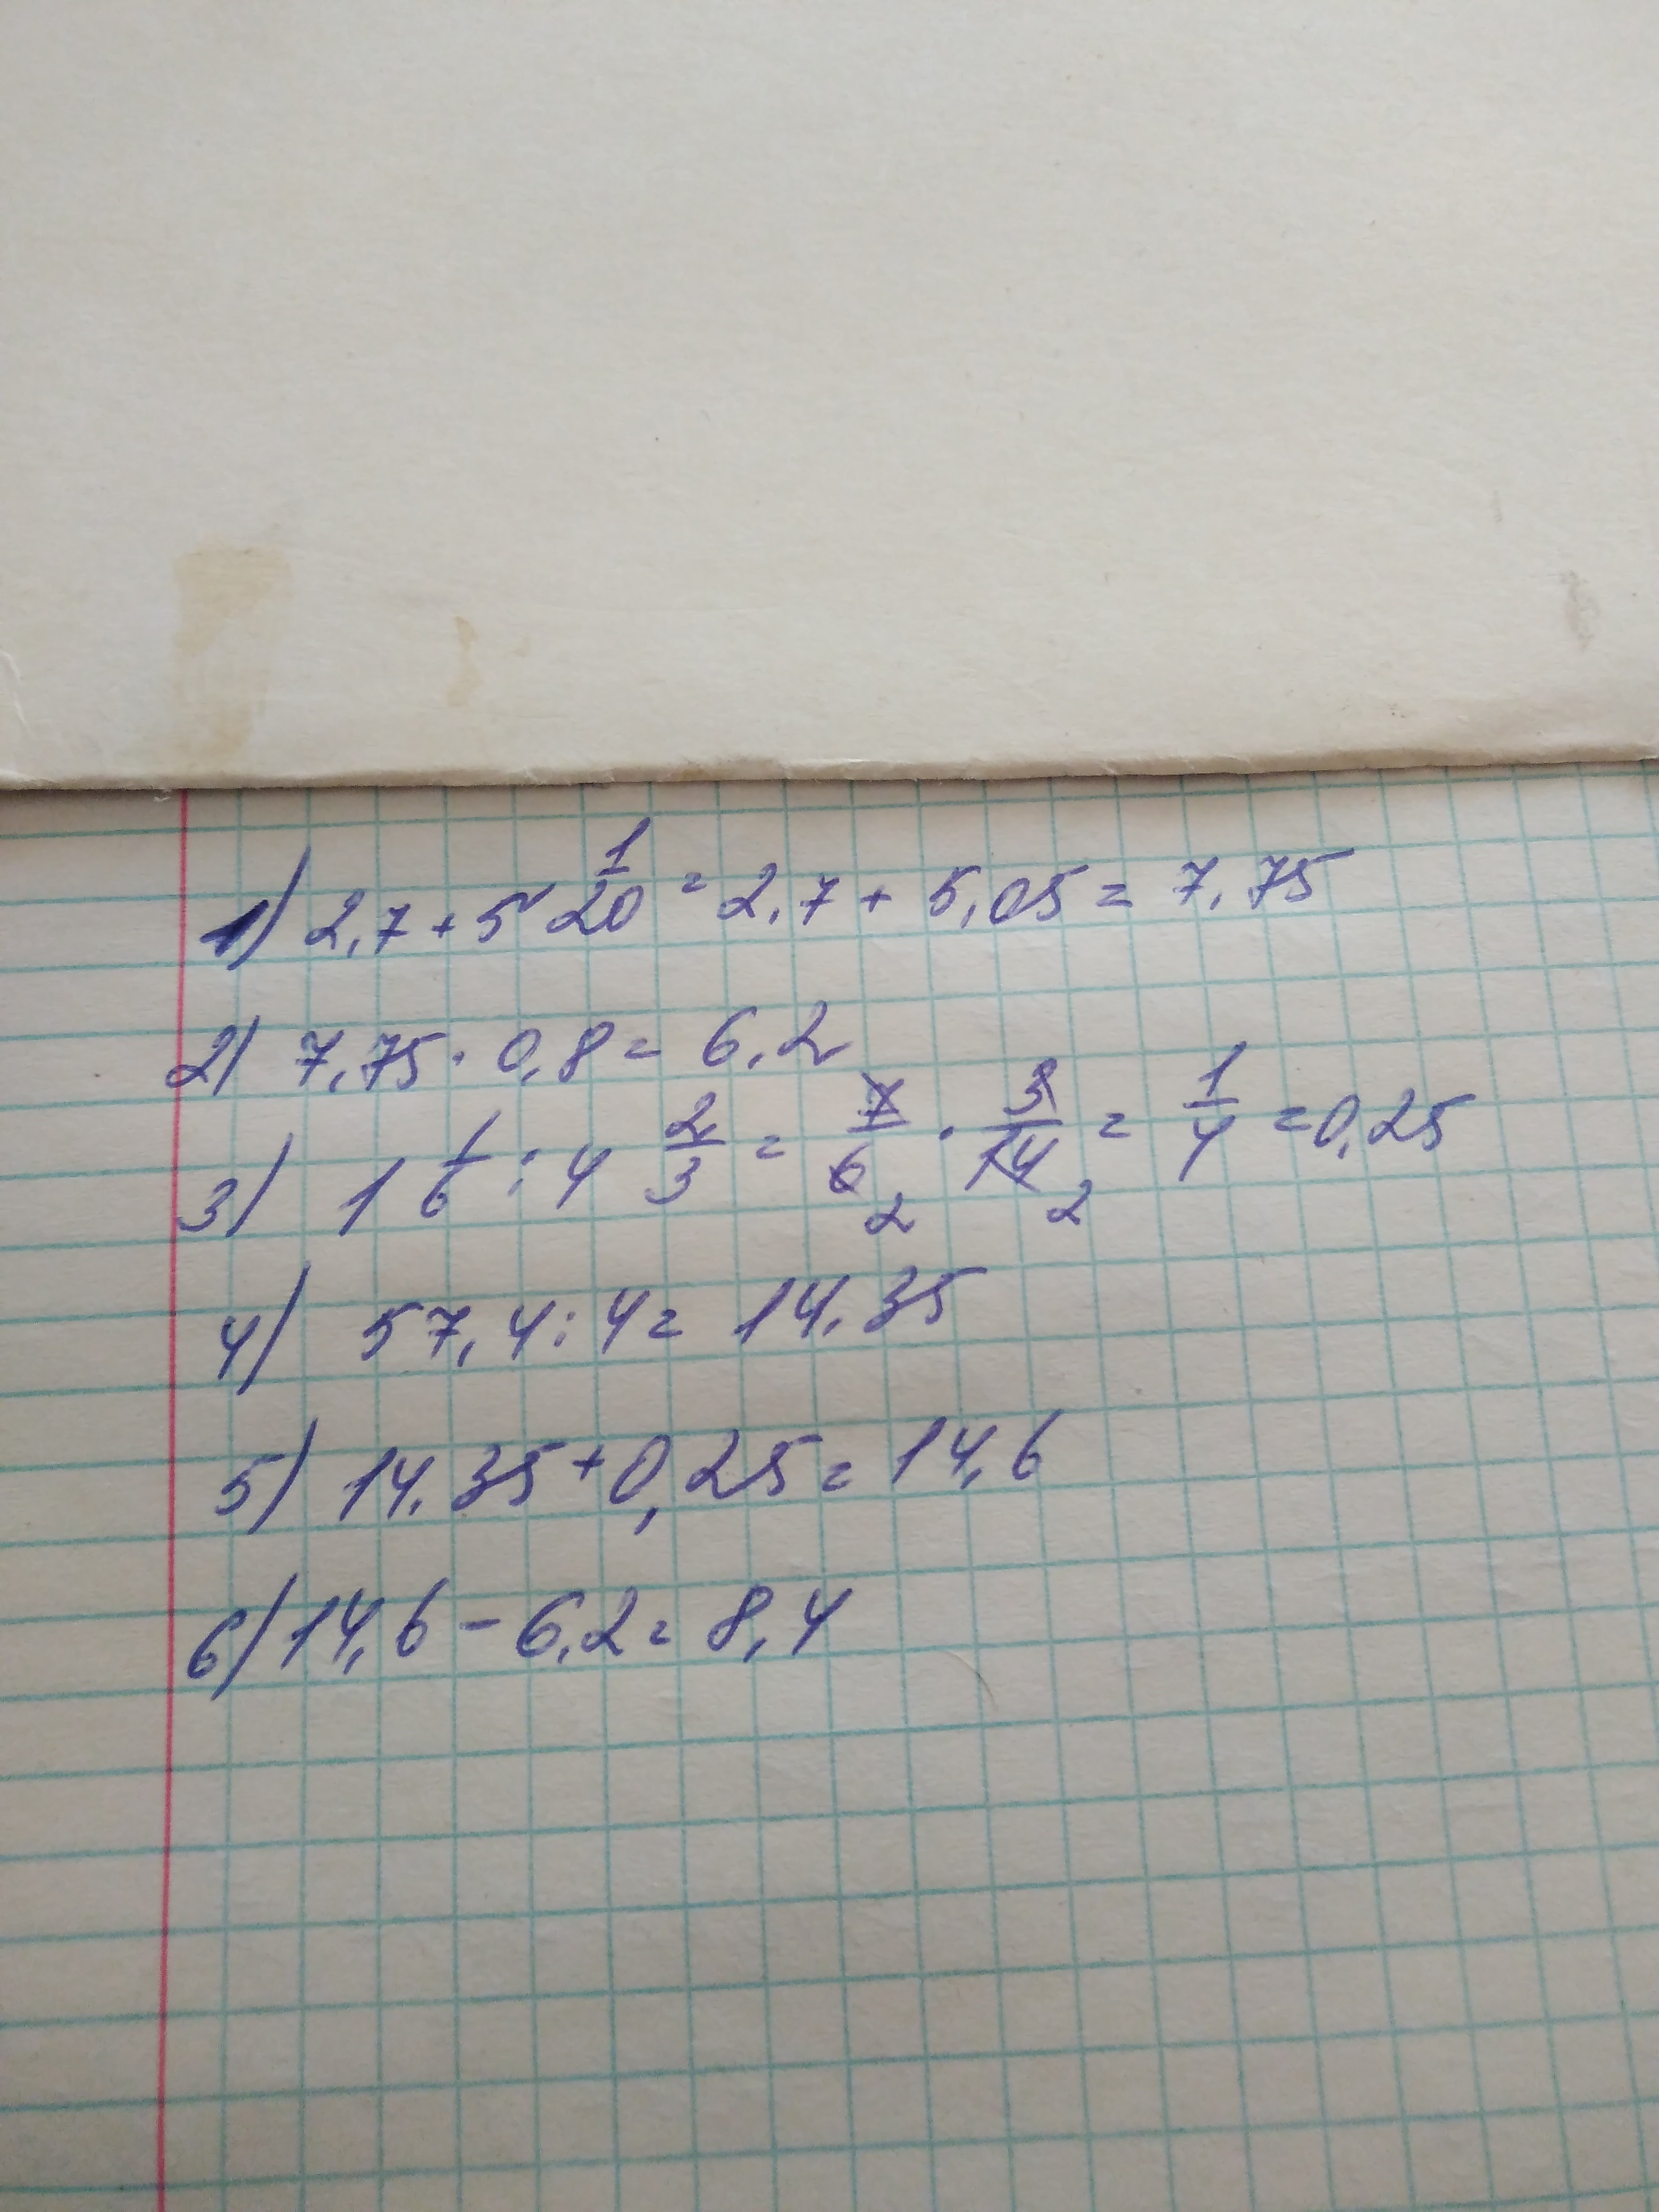 1) 2,7 + 5 1/20 = 2,7 + 5,05 = 7,75
2) 7,75 · 0,8 = 6,2
3) 1 1/6 : 4 2/3 = 7/6 2 · 3/14 2 = 1/4 = 0,25
4) 57,4 : 4 = 14,35
5) 14,35 + 0,25 = 14,6
6) 14,6 - 6,2 = 8,4